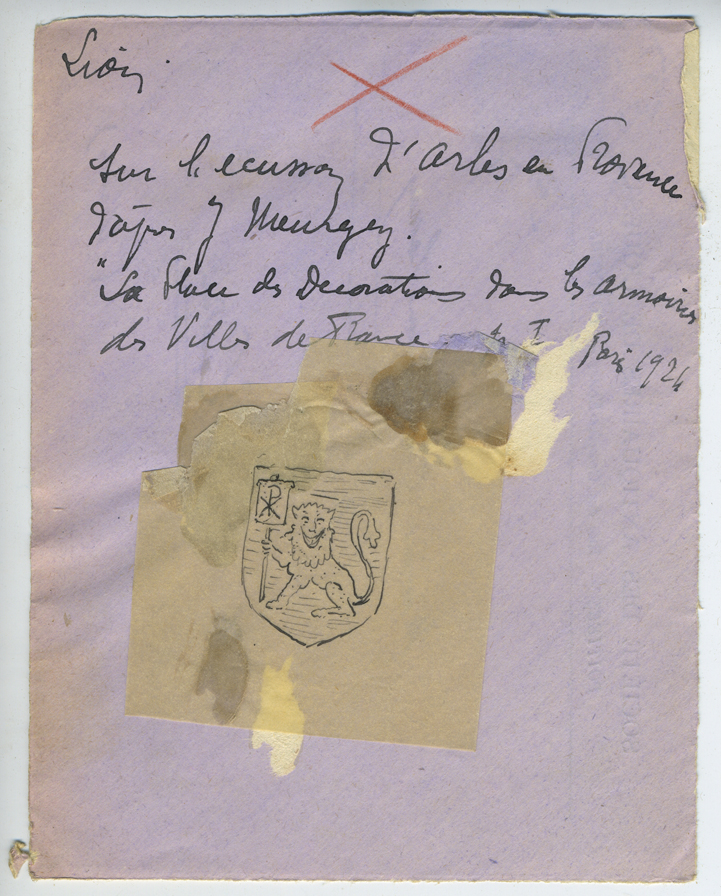 Lion
sur l'ecusson d'Arles en Provence
d'après J Meurgey.
"La Place des Decorations dans les armoiries
des Villes de France. Paris 1924